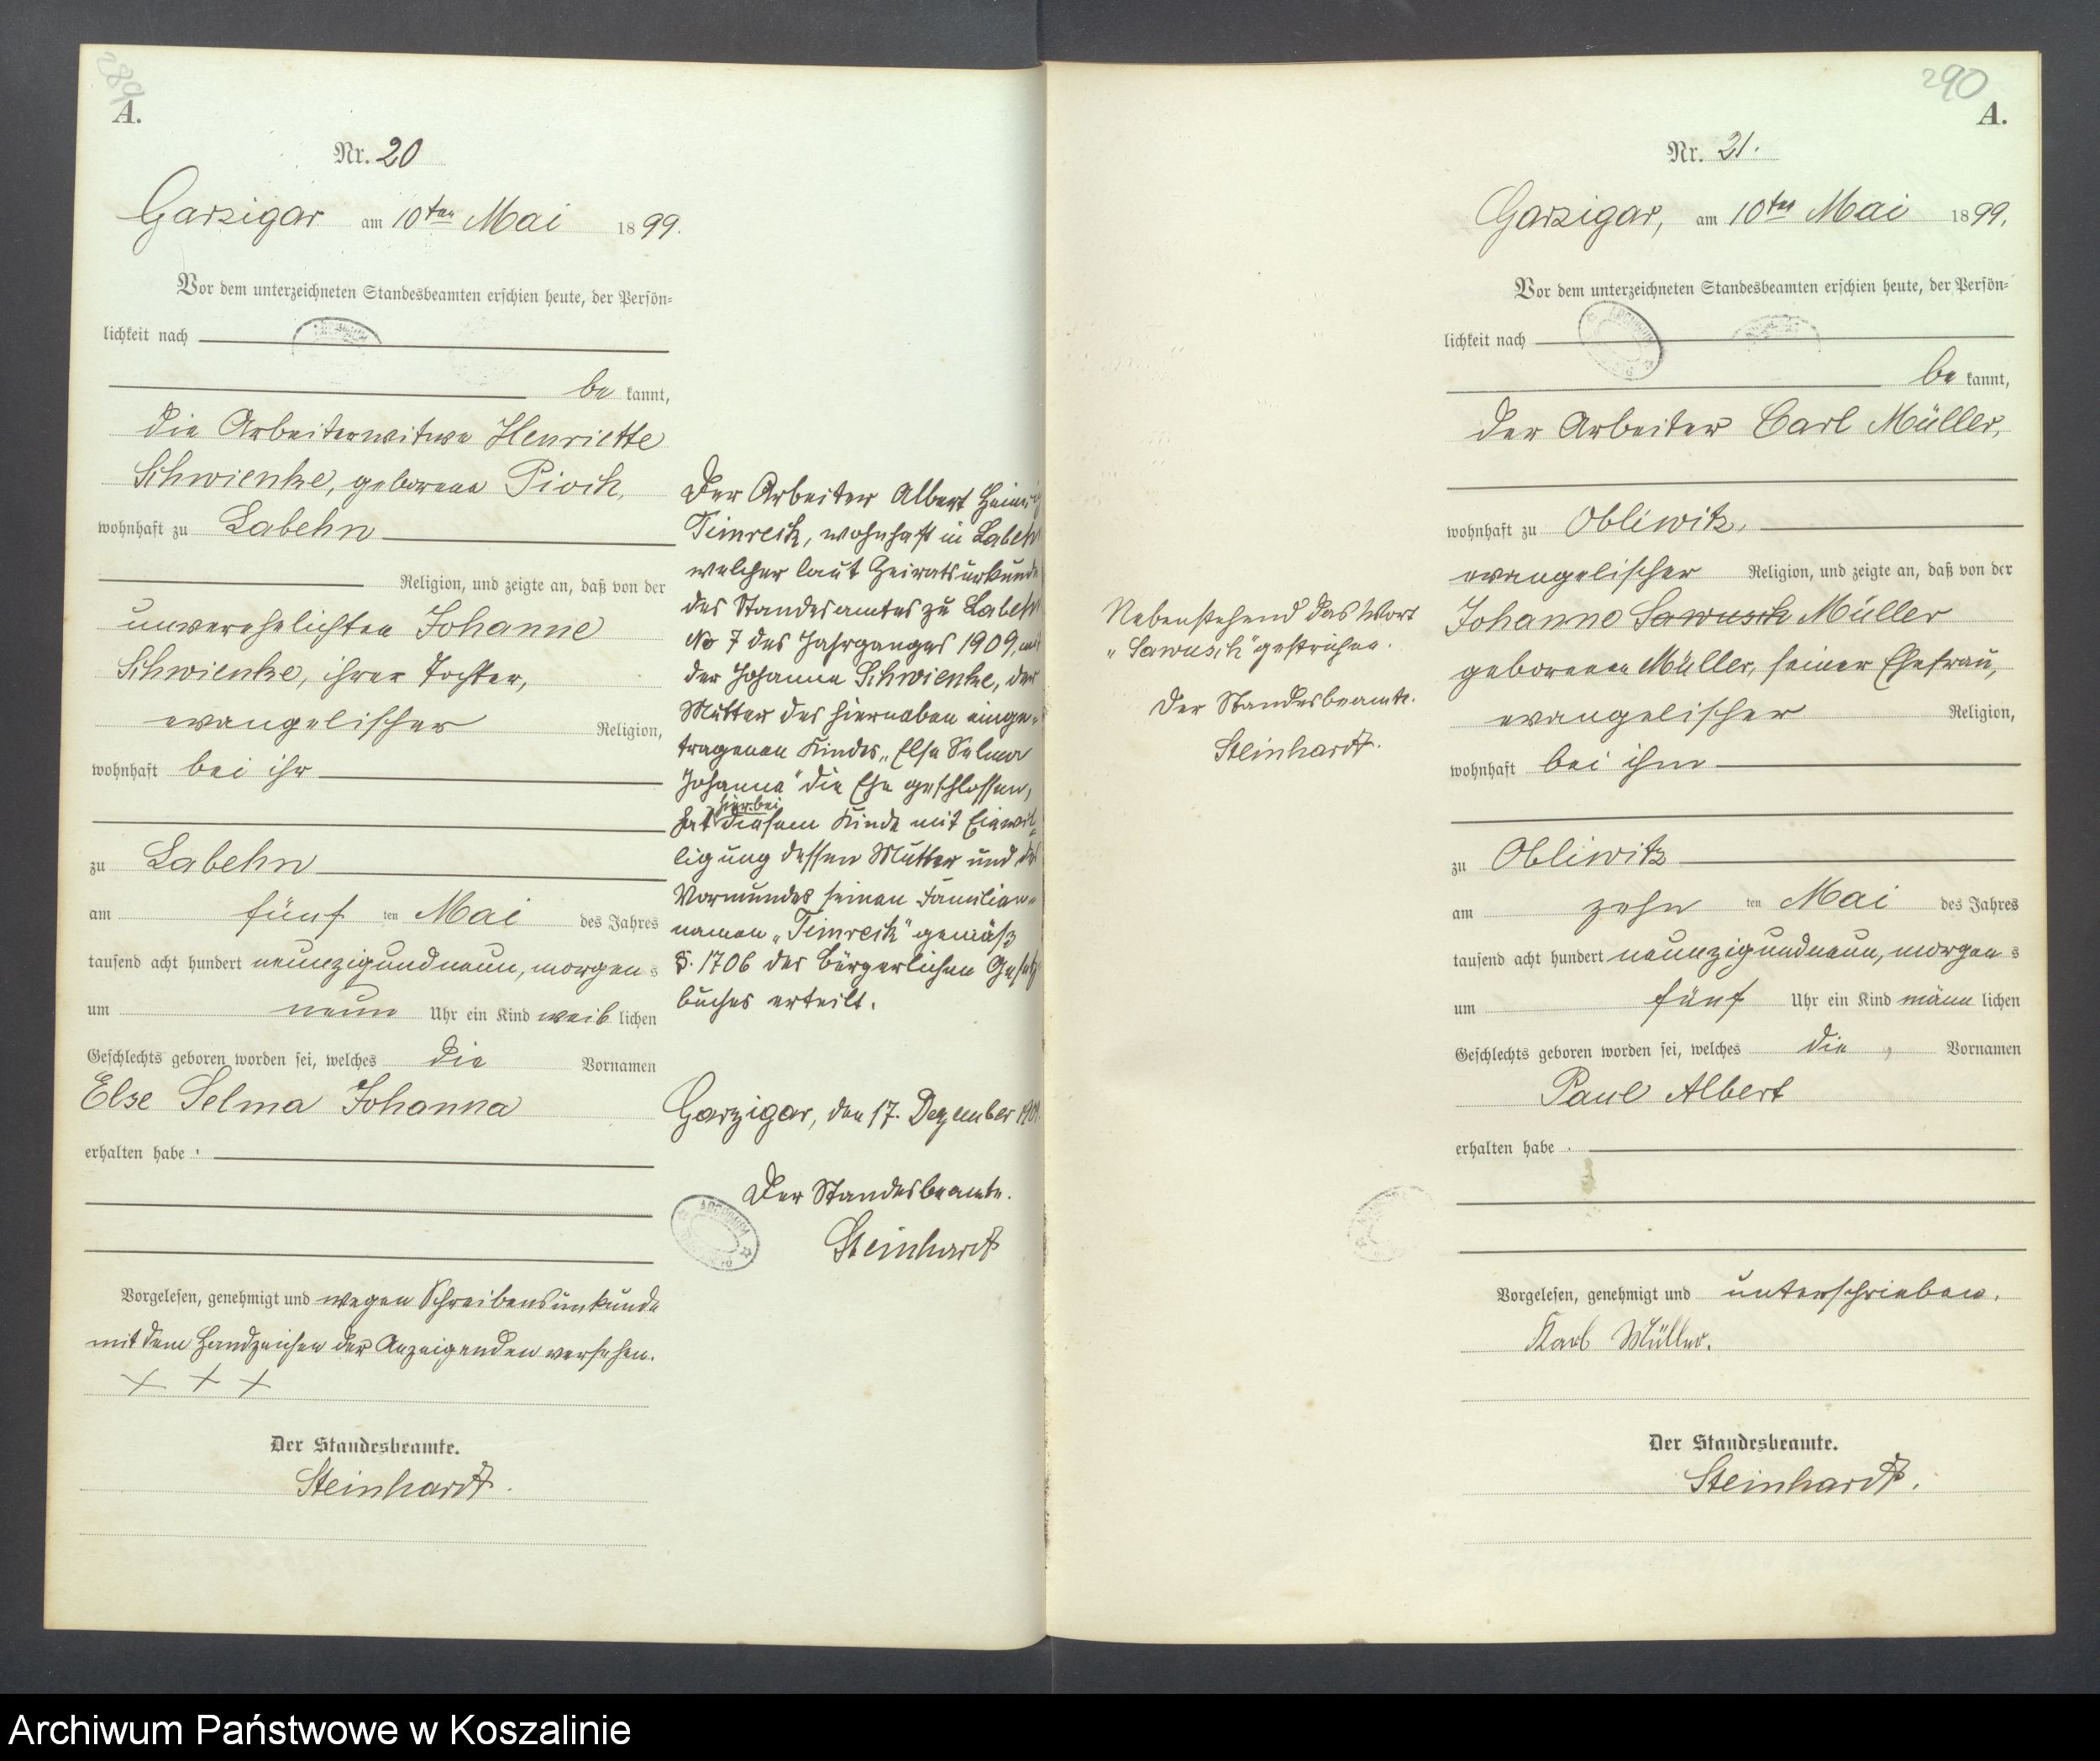 289
A.
Nr. 20
Garzigar am 10ten Mai 1899.
Vor dem unterzeichneten Standesbeamten erschien heute, der Persön-
lichkeit nach
be kannt,
die Arbeiterwitwe Henriette
Schwienke, geborene Pioch,
wohnhaft zu Labehn
Religion, und zeigte an, daß von der
unverehelichten Johanne
Schwienke, ihrer Tochter,
evangelischer Religion,
wohnhaft bei ihr
zu Labehn
am fünf ten Mai des Jahres
tausend acht hundert neunzigundneun, morgens
um neun Uhr ein Kind weib lichen
Geschlechts geboren worden sei, welches die Vornamen
Else Selma Johanna
erhalten habe.
Vorgelesen, genehmigt und wegen Schreibensunkunde
mit dem Handzeichen der Anzeigenden versehen.
+ + +
Der Standesbeamte.
Steinhardt.
Der Arbeiter Albert
Timreck, wohnhaft in Labehn
welcher laut Heiratsurkunde
des Standesamtes zu Labehn
No 7 des Jahrganges 1909, mit
der Johanna Schwienke, der
Mutter des hierneben einge-
tragenen Kindes "Else Selma
Johanna" die Ehe geschlossen,
hat hierbei diesem Kinde mit Einwil-
ligung dessen Mutter und des
Vormundes seinen Familien-
namen "Timreck" gemäß
§. 1706 des Bürgerlichen Gesetz
buches erteilt.
Garzigar, den 17. Dezember
Der Standesbeamte.
Steinhardt
290
A.
Nr. 21.
Garzigar, am 10ten Mai 1899.
Vor dem unterzeichneten Standesbeamten erschien heute, der Persön-
lichkeit nach
be kannt,
der Arbeiter Carl Müller,
wohnhaft zu Obliwitz,
evangelischer Religion, und zeigte an, daß von der
Johanne Sawusch Müller
geborenen Müller, seiner Ehefrau,
evangelischer Religion,
wohnhaft bei ihm
zu Obliwitz
am zehn ten Mai des Jahres
tausend acht hundert neunzigundneun, morgens
um fünf Uhr ein Kind männ lichen
Geschlechts geboren worden sei, welches die Vornamen
Paul Albert
erhalten habe.
Vorgelesen, genehmigt und unterschrieben.
Karl Müller.
Der Standesbeamte.
Steinhardt.
Nebenstehend das Wort
"Sawusch" gestrichen.
Der Standesbeamte.
Steinhardt.
Archiwum Państwowe w Koszalinie